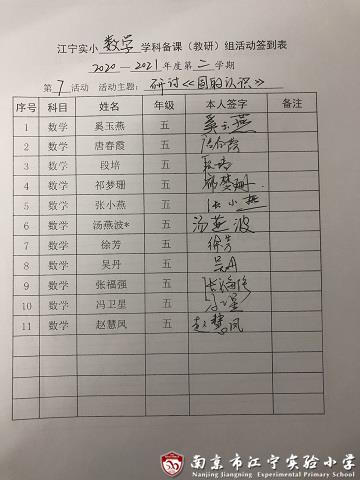 江宁实小 数学 学科备课（教研）组活动签到表
2020—2021年度第二学期
第 7 活动 活动主题：研讨《圆的认识》
序号 科目 姓名 年级 本人签字 备注
1 数学 奚玉燕 五 奚玉燕
2 数学 唐春霞 五
3 数学 段培 五 段培
4 数学 祁梦珊 五 祁梦珊
5 数学 张小燕 五 张小燕
6 数学 汤燕波* 五 汤燕波
7 数学 徐芳 五 徐芳
8 数学 吴丹 五 吴丹
9 数学 张福强 五
10 数学 冯卫星 五
11 数学 赵慧凤 五 赵慧凤
南京市江宁实验小学
Nanjing Jiangning Experimental Primary School